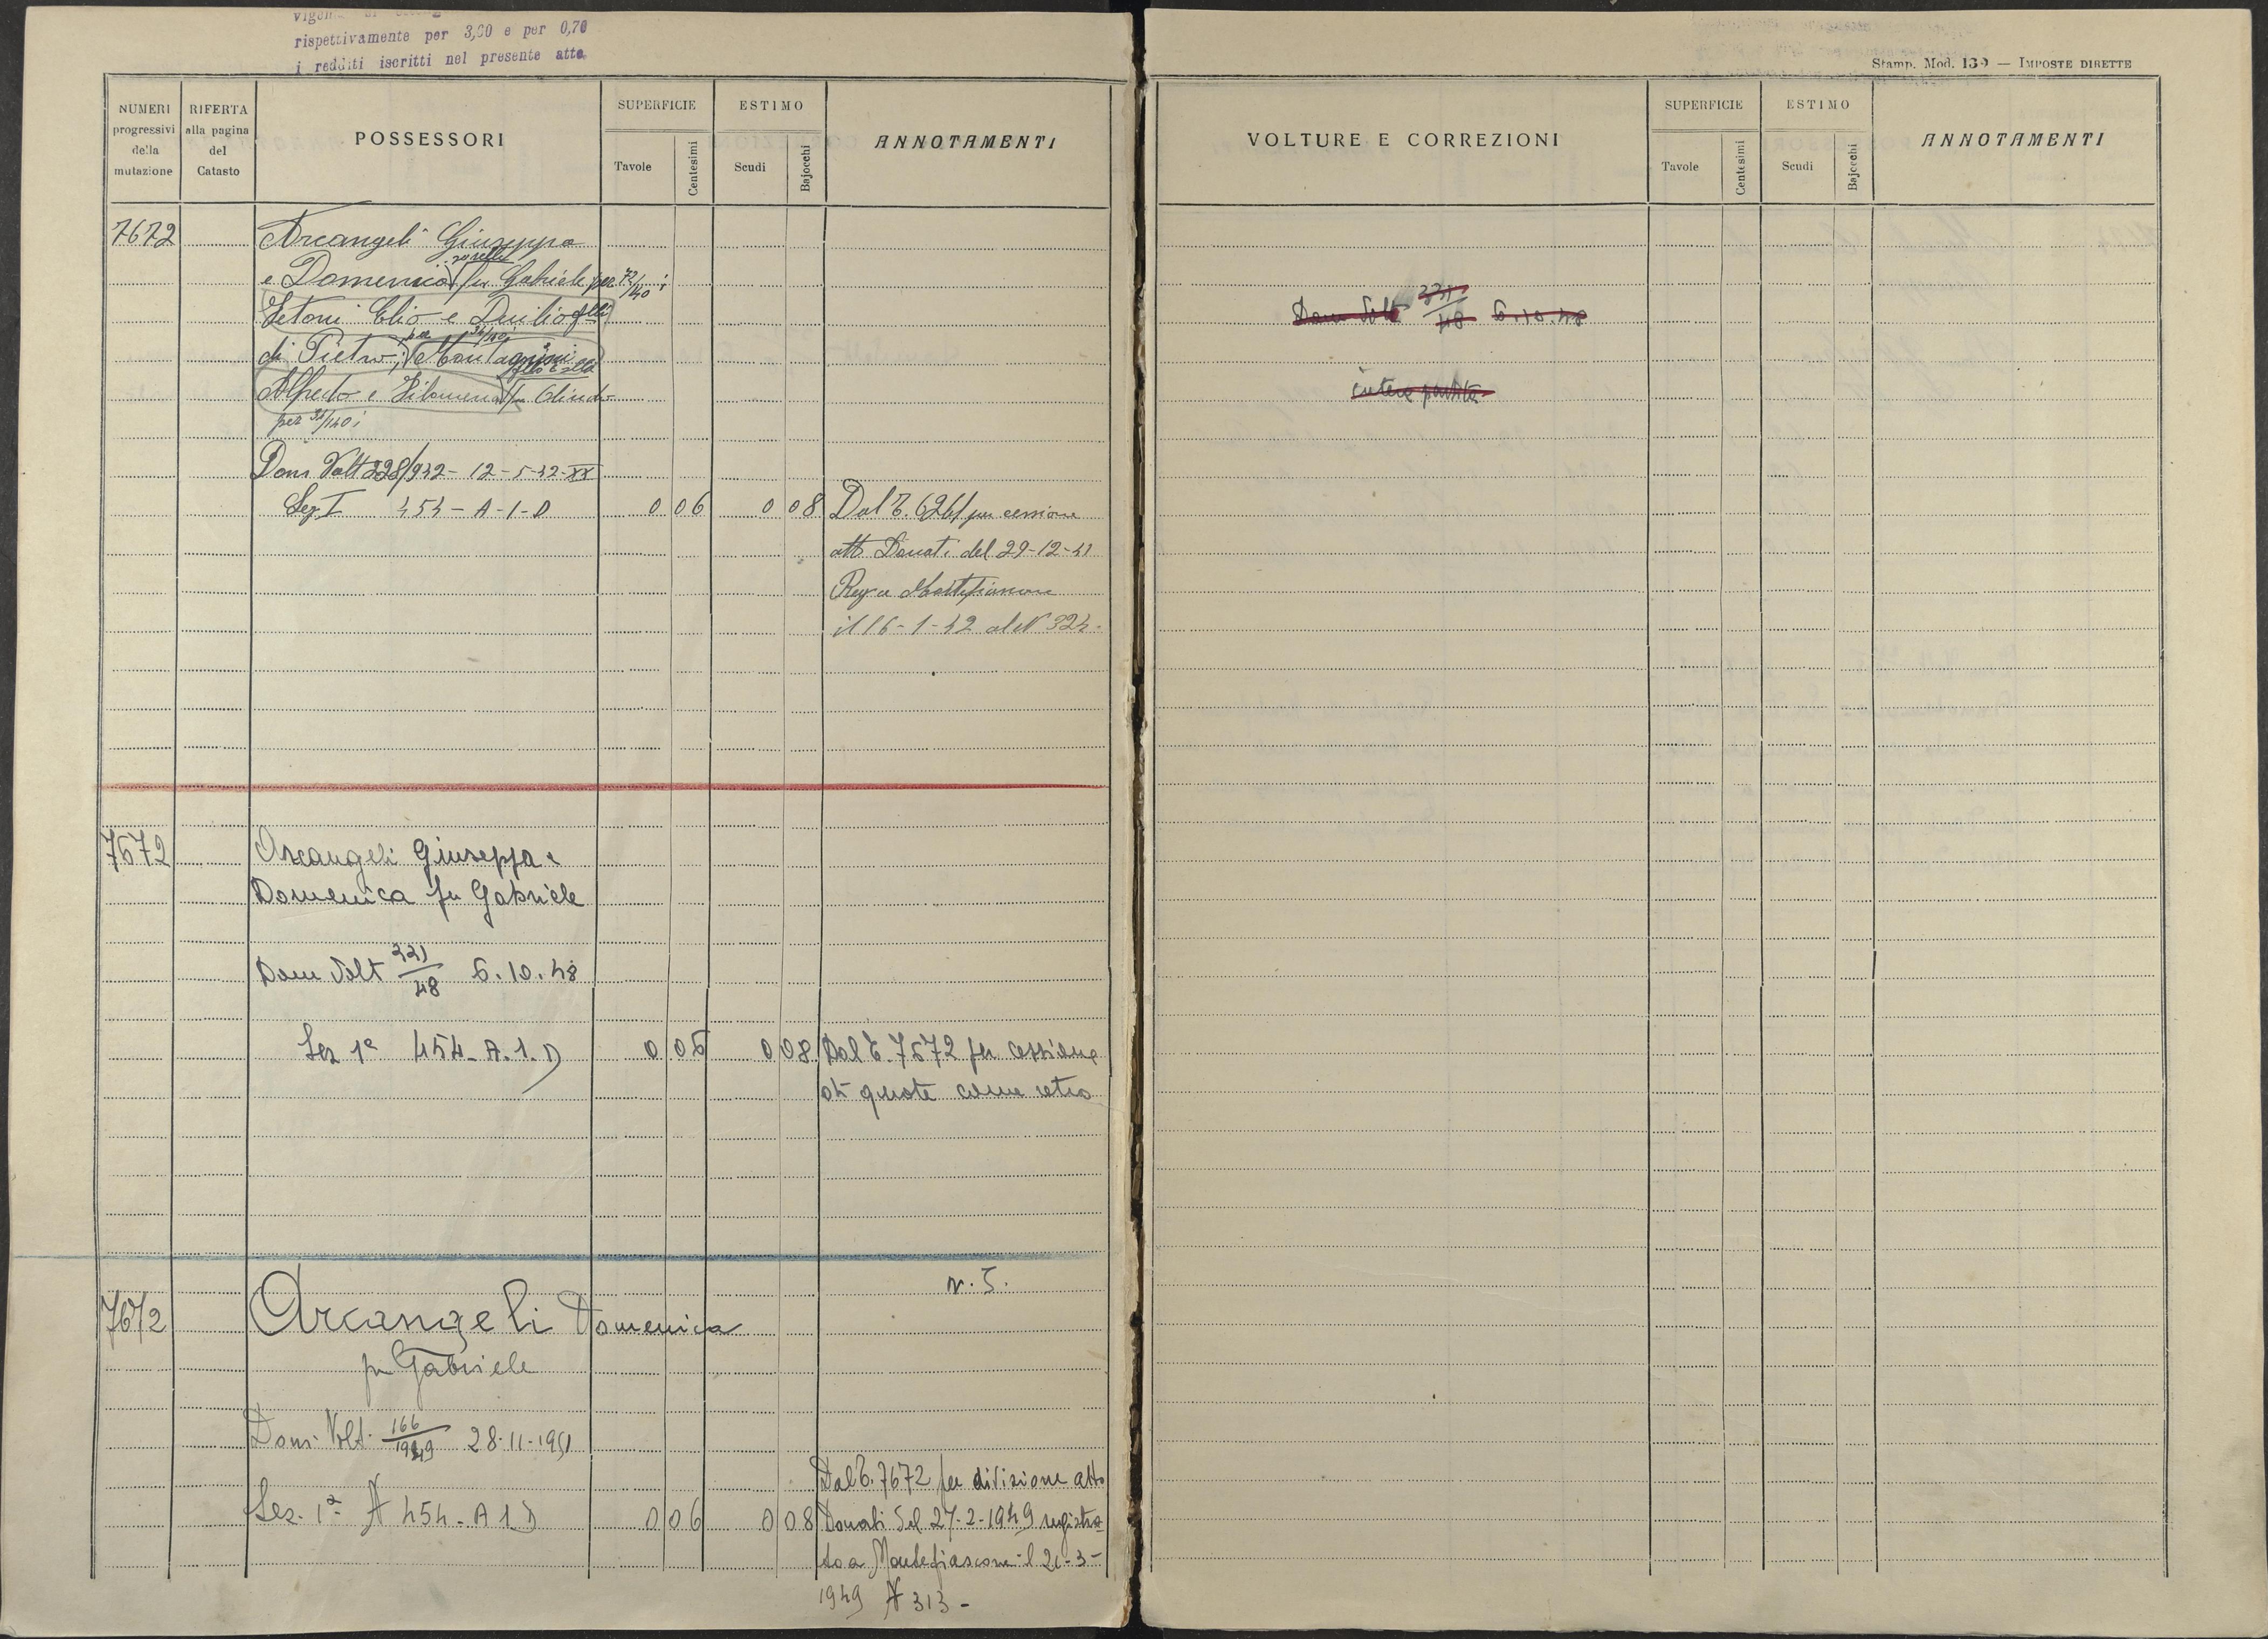 rispettivamente per 3,00 e per 0,70
i redditi iscritti nel presente atto.
NUMERI progressivi della mutazione
RIFERTA alla pagina del Catasto
POSSESSORI
SUPERFICIE
Tavole
Centesimi
ESTIMO
Scudi
Bajocchi
ANNOTAMENTI
7672
Arcangeli Giuseppa
sorelle
e Domenica fu Gabriele per 72/140;
Letori Elio e Duilio flli
per 34/140;
di Pietro; Montagnini
Alfredo e Filomena fu Olindo
per 34/140;
Dom Volt 228/942 - 12-5-42-XX
Sez I 454 - A-1-D 0 06 0 08 Dal T. 6261 per cessione
atto Donati del 29-12-41
Reg a Montefiascone
il 16-1-42 al N 324-
7672
Arcangeli Giuseppa e
Domenica fu Gabriele
Dom Volt 221/48 6.10.48
Sez 1a 454-A.1.D 0 06 0 08 Dal T. 7672 per cessione
di quote come retro
n. 5.
7672
Arcangeli Domenica
fu Gabriele
Dom. Volt. 166/1949 28-11-1951
Dal T. 7672 per divisione atto
Sez. 1a N 454-A 1 D 0 06 0 08 Donati del 27-2-1949 registra
to a Montefiascone il 21-3-
1949 N 313-
Stamp. Mod. 130 — IMPOSTE DIRETTE
VOLTURE E CORREZIONI
SUPERFICIE
Tavole
Centesimi
ESTIMO
Scudi
Bajocchi
ANNOTAMENTI
Dom Volt 221/48 6.10.48
intera partita